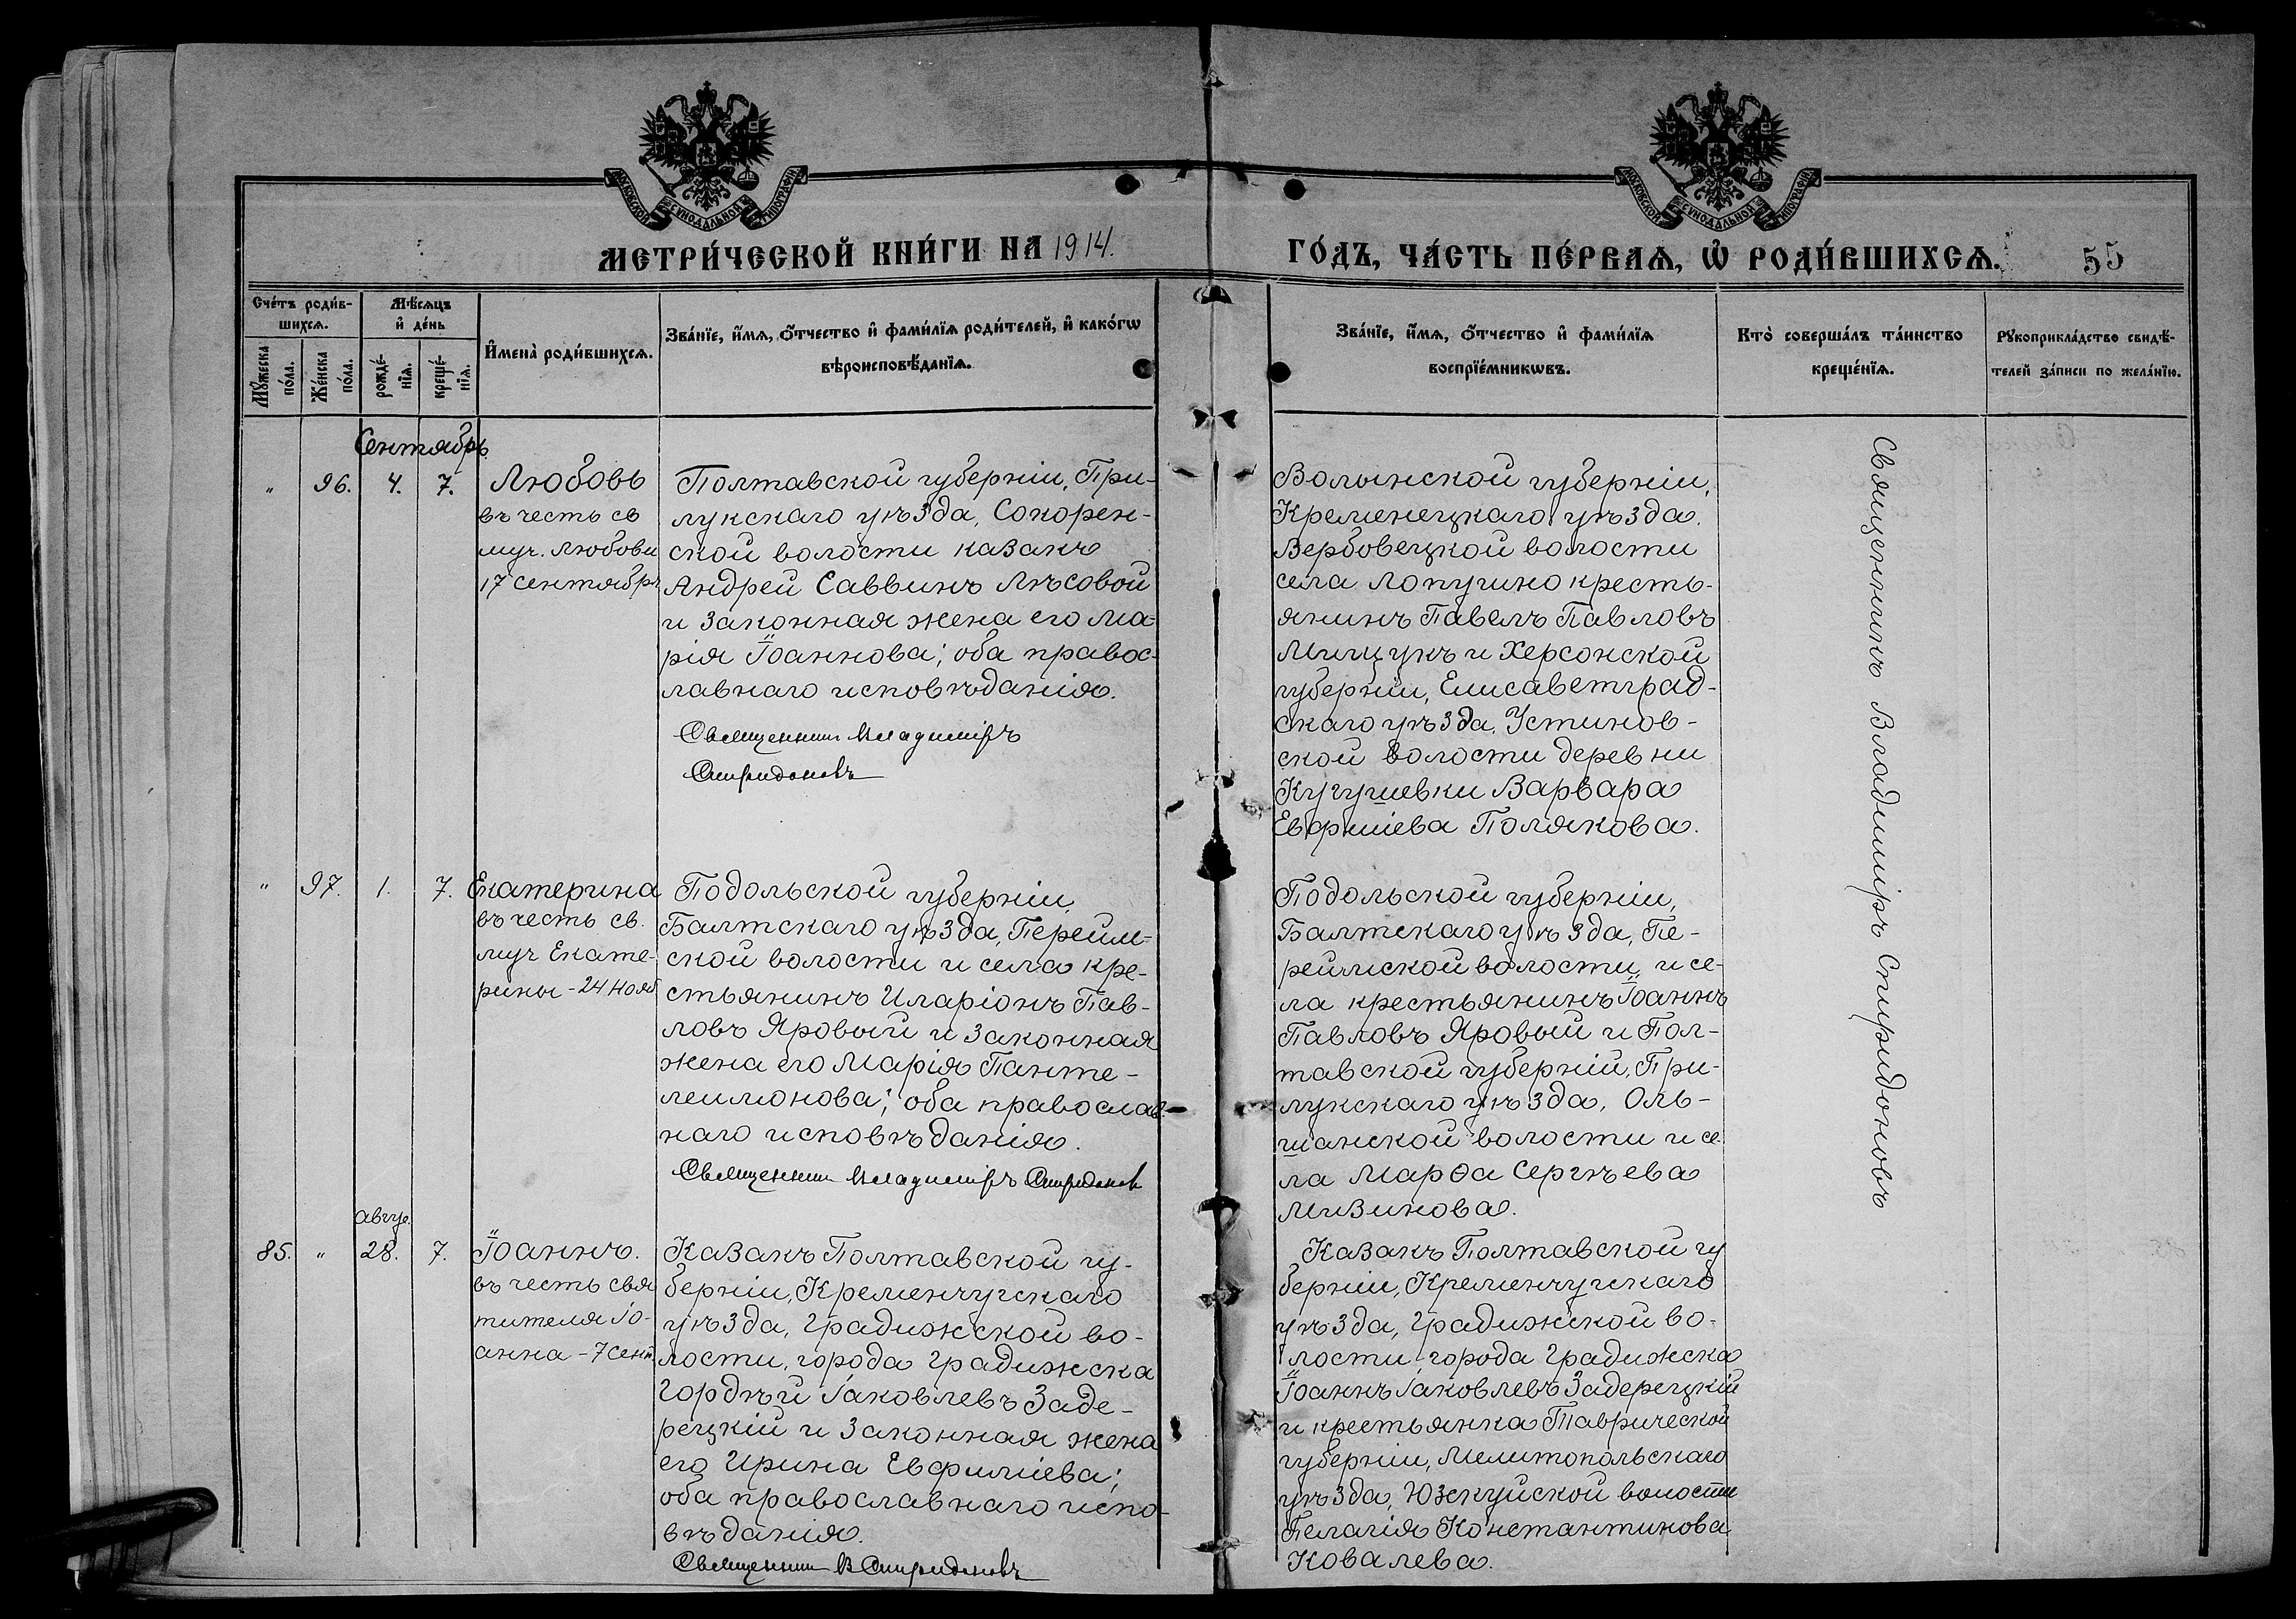 МОСКОВСКОЙ СѴНОДАЛЬНОЙ ТИПОГРАФІИ
МОСКОВСКОЙ СѴНОДАЛЬНОЙ ТИПОГРАФІИ
МЕТРИ́ЧЕСКОЙ КНИ́ГИ НА 1914.
ГО́ДЪ, ЧА́СТЬ ПЕ́РВАѦ, Ѽ РОДИ́ВШИХСѦ. 55
Сче́тъ роди́в-
шихсѧ.
Мѣ́сѧцъ
и҆ де́нь
Мꙋ́жеска
по́ла.
Же́нска
по́ла.
рожде́-
нїѧ.
креще́-
нїѧ.
И҆мена̀ роди́вшихсѧ.
Зва́нїе, и҆́мѧ, ѻ҆́тчество и҆ фами́лїѧ роди́телей, и҆ како́гѡ
вѣроисповѣ́данїѧ.
Зва́нїе, и҆́мѧ, ѻ҆́тчество и҆ фами́лїѧ
воспрїе́мникѡвъ.
Кто̀ соверша́лъ та́инство
креще́нїѧ.
Рꙋкоприкла́дство свидѣ́-
телей за́писи по жела́нїю.
Сентябрь
" 96. 4. 7.
Любовь
въ честь св
муч. Любови
17 сентябрь
Полтавской губерніи, При-
лукскаго уѣзда, Сокорен-
ской волости казакъ
Андрей Саввинъ Лѣсовой
и законная жена его Ма-
рія Іоаннова; оба правос-
лавнаго исповѣданія.
Священник Владиміръ
Спиридоновъ
Волынской губерніи,
Кременецкаго уѣзда,
Вербовецкой волости
села Лопушно кресть-
янинъ Павелъ Павловъ
Мищукъ и Херсонской
губерніи, Елисаветград-
скаго уѣзда, Устинов-
ской волости деревни
Кугушевки Варвара
Евфиміева Полякова.
Священникъ Владиміръ Спиридоновъ
" 97. 1. 7.
Екатерина
въ честь св.
муч Екате-
рины - 24 нояб
Подольской губерніи,
Балтскаго уѣзда, Перейм-
ской волости и села кре-
стьянинъ Иларіонъ Пав-
ловъ Яровый и законная
жена его Марія Панте-
леимонова; оба православ-
наго исповѣданія.
Священник Владиміръ Спиридонов
Подольской губерніи,
Балтскаго уѣзда, Пе-
реймской волости и се-
ла крестьянинъ Іоаннъ
Павловъ Яровый и Пол-
тавской губерніи, При-
лукскаго уѣзда, Оль-
шанской волости и се-
ла Марѳа Сергѣева
Мизинова.
авгус.
85. " 28. 7.
Іоаннъ.
въ честь свя
тителя Іо-
анна - 7 сент.
Казакъ Полтавской гу-
берніи, Кременчугскаго
уѣзда, Градижской во-
лости, города Градижска
Гордѣй Іаковлевъ Заде-
рецкій и законная жена
его Ирина Евфиміева;
оба православнаго испо-
вѣданія.
Священник В Спиридоновъ
Казакъ Полтавской гу
берніи, Кременчугскаго
уѣзда, Градижской во-
лости города Градижска
Іоаннъ Іаковлевъ Задерецкій
и крестьянка Таврической
губерніи, Мелитопольскаго
уѣзда, Юзкуйской волости
Пелагія Константинова
Ковалева.